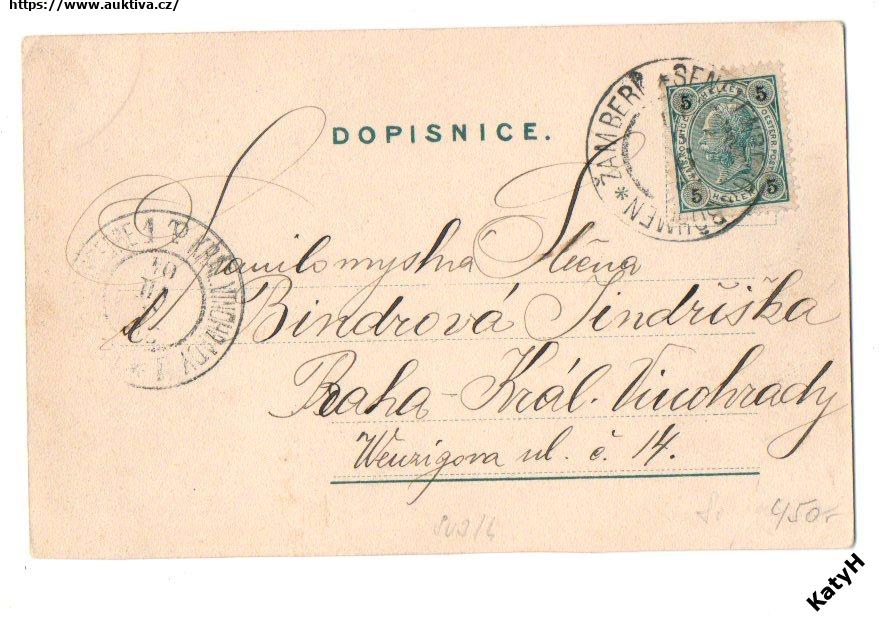 https://www.auktiva.cz/
DOPISNICE.
ŽAMBERK * SENFTENBERG * BÖHMEN
5 HELLER 5
5 HELLER 5
Slečna
Bindrová Jindřiška
Praha - Král. Vinohrady
Wenzigova ul. č. 14.
KRÁL. VINOHRADY 1
450,-
KatyH